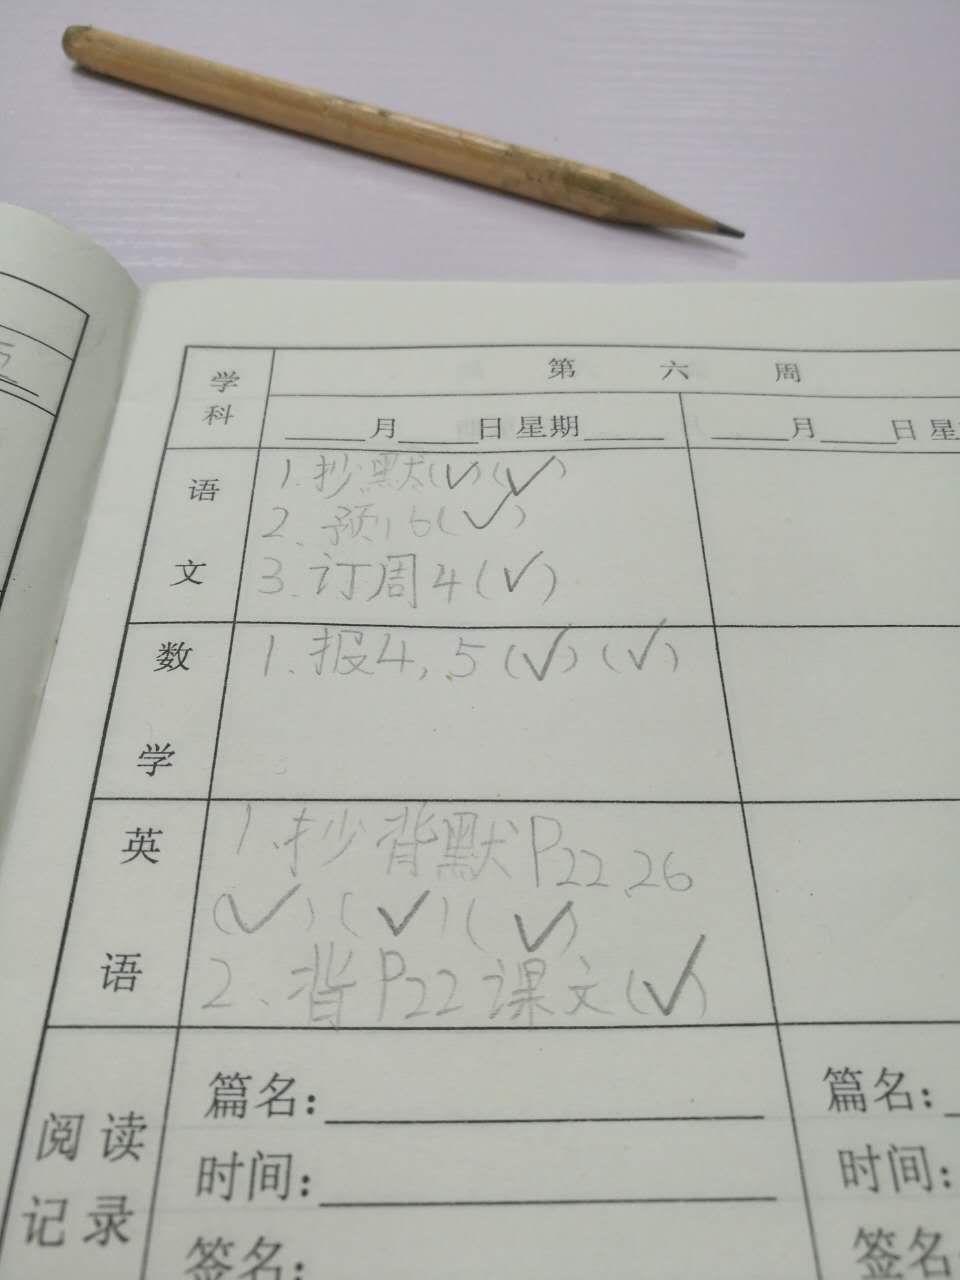 学科
第 六 周
____月____日 星期____ ____月____日 星
语文
1.抄默(✓)(✓)
2.预16(✓)
3.订周4(✓)
数学
1.报4,5(✓)(✓)
英语
1.抄背默P22、26
(✓)(✓)(✓)
2、背P22课文(✓)
阅读记录
篇名:
时间:
签名:
篇名:
时间:
签名